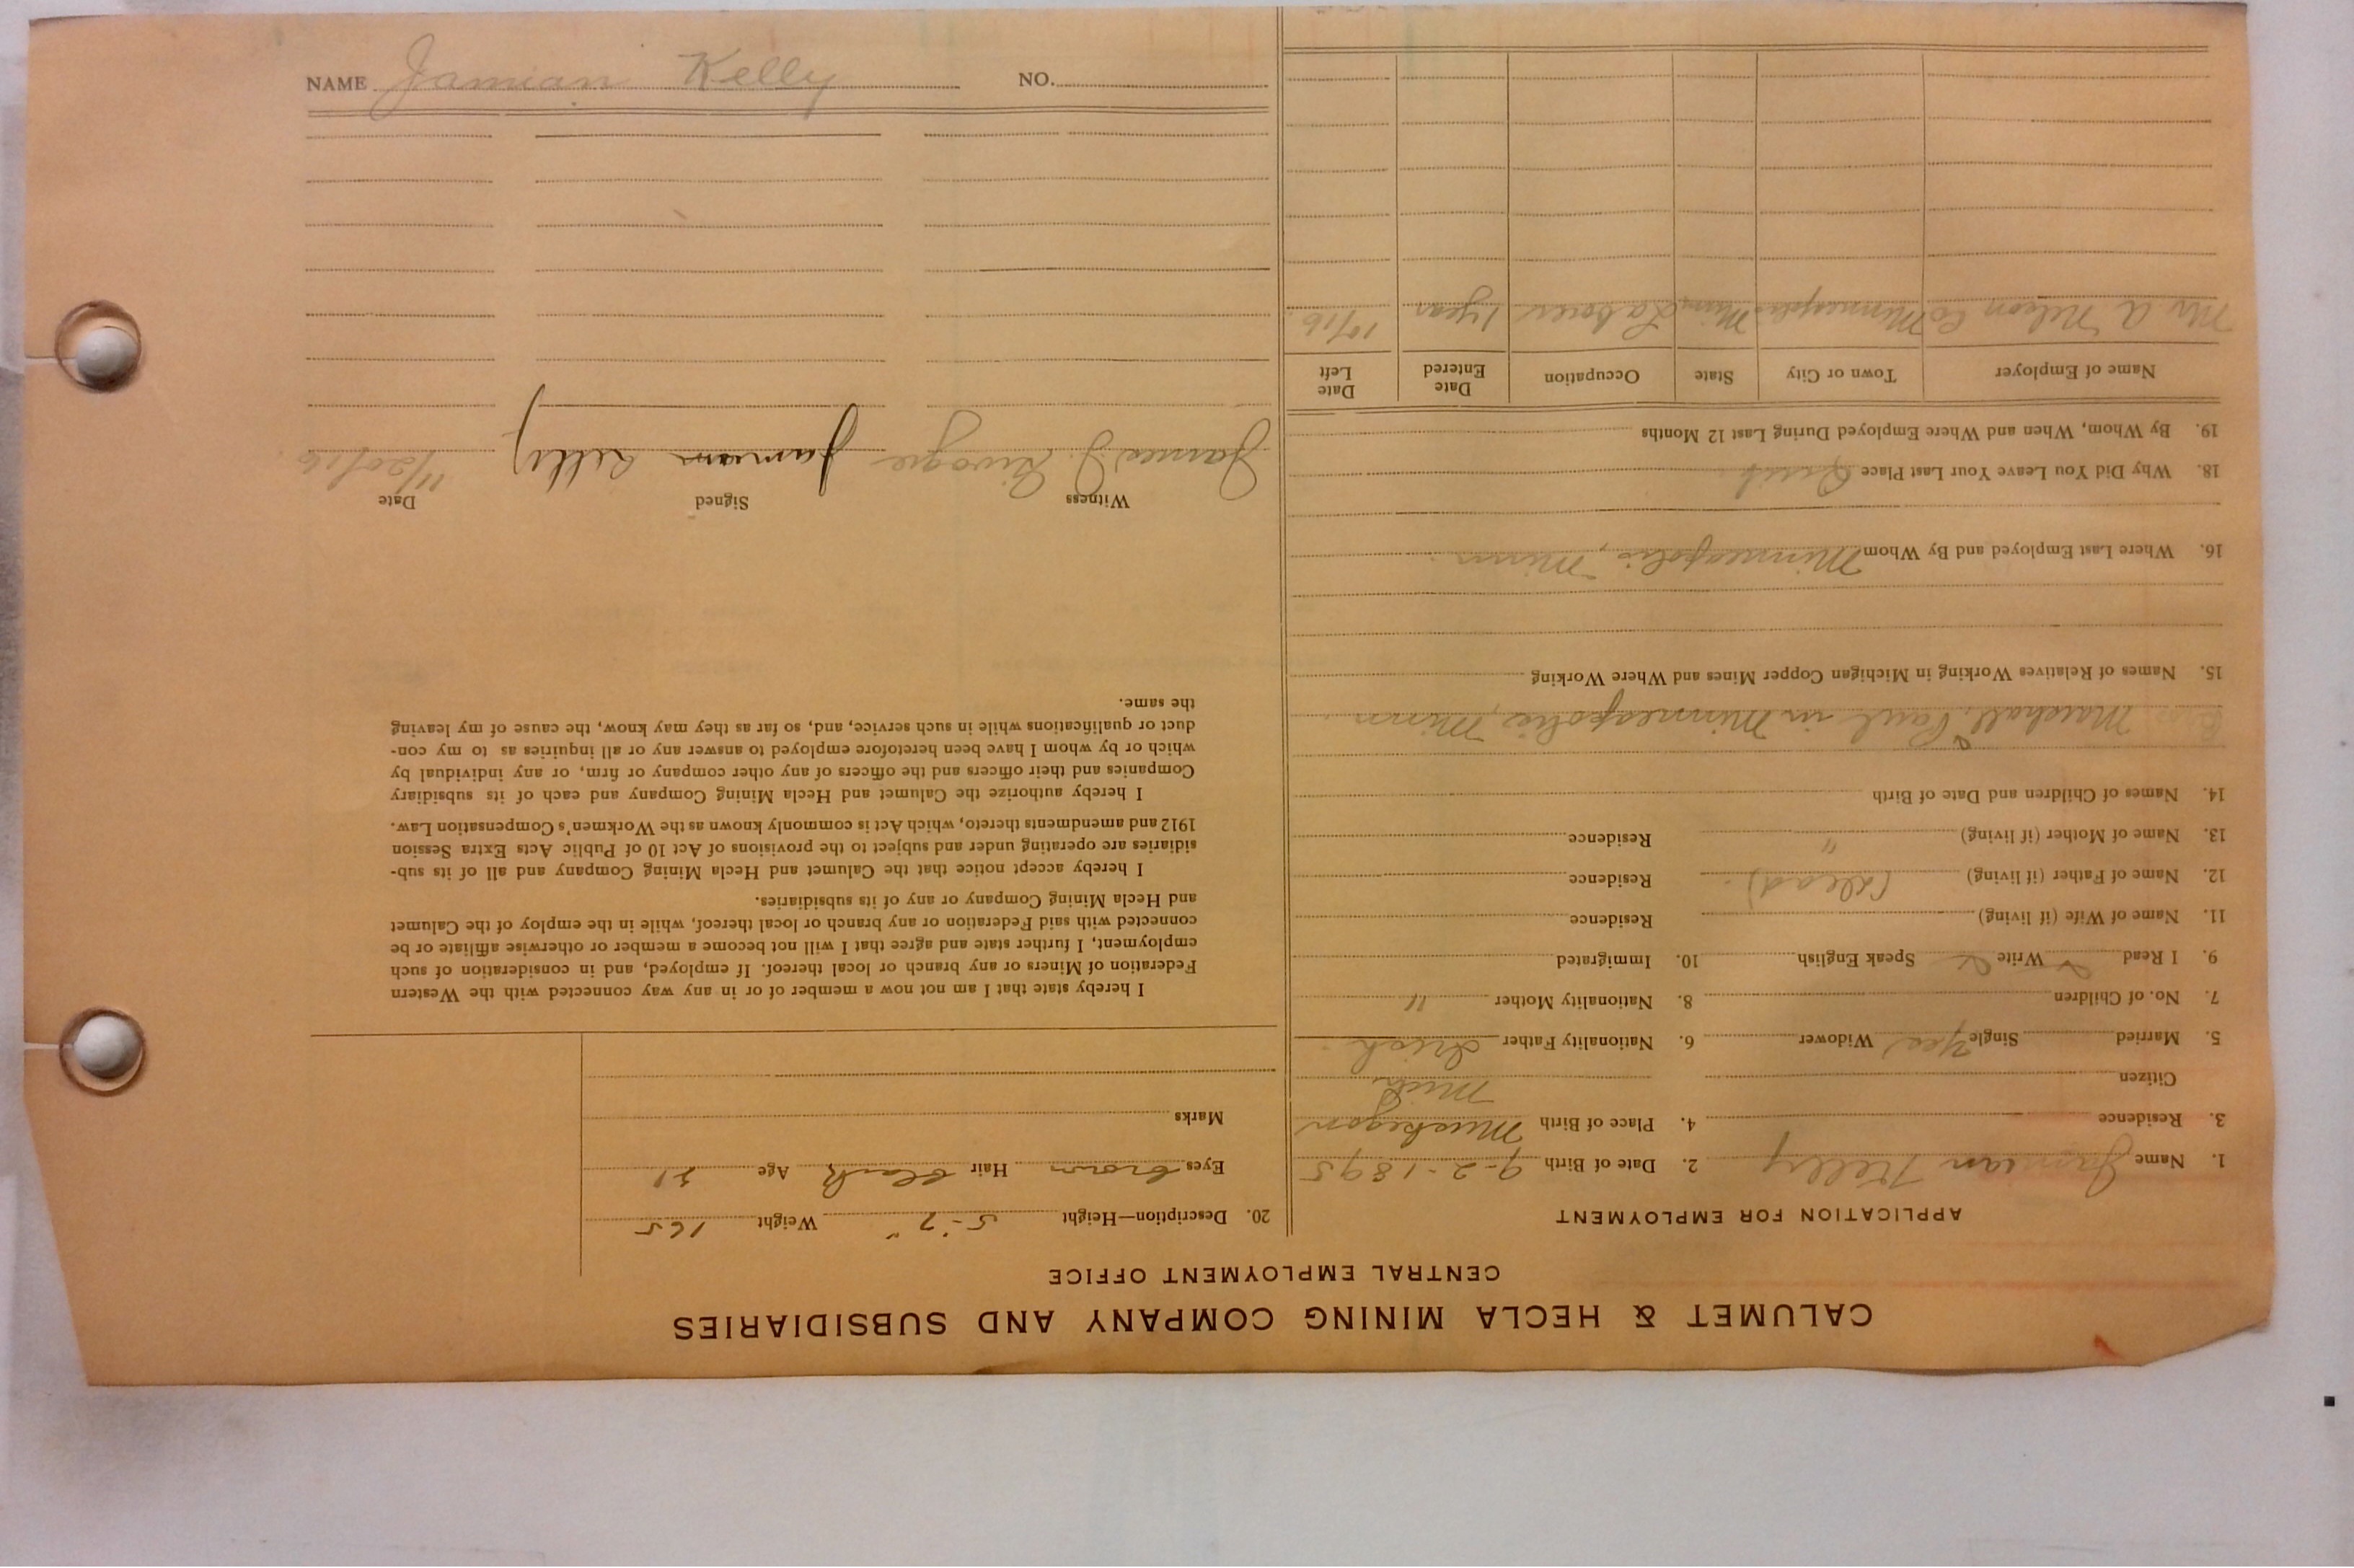 CALUMET & HECLA MINING COMPANY AND SUBSIDIARIES
CENTRAL EMPLOYMENT OFFICE
APPLICATION FOR EMPLOYMENT
1. Name Jamian Kelly 2. Date of Birth 9-2-1895
3. Residence 4. Place of Birth Muskegon
Citizen Mich.
5. Married Single Yes Widower 6. Nationality Father Irish
7. No. of Children 8. Nationality Mother "
9. I Read Write Speak English 10. Immigrated
11. Name of Wife (if living) Residence
12. Name of Father (if living) (dead) Residence
13. Name of Mother (if living) " Residence
14. Names of Children and Date of Birth
Marshall, Paul in Minneapolis, Minn.
15. Names of Relatives Working in Michigan Copper Mines and Where Working
16. Where Last Employed and By Whom Minneapolis, Minn
18. Why Did You Leave Your Last Place Quit
19. By Whom, When and Where Employed During Last 12 Months
Name of Employer Town or City State Occupation Date Entered Date Left
Mr A Nelson Co Minneapolis Minn Laborer 1 year 10/16
20. Description—Height 5-7" Weight 165
Eyes brown Hair black Age 21
Marks
I hereby state that I am not now a member of or in any way connected with the Western
Federation of Miners or any branch or local thereof. If employed, and in consideration of such
employment, I further state and agree that I will not become a member or otherwise affiliate or be
connected with said Federation or any branch or local thereof, while in the employ of the Calumet
and Hecla Mining Company or any of its subsidiaries.
I hereby accept notice that the Calumet and Hecla Mining Company and all of its sub-
sidiaries are operating under and subject to the provisions of Act 10 of Public Acts Extra Session
1912 and amendments thereto, which Act is commonly known as the Workmen's Compensation Law.
I hereby authorize the Calumet and Hecla Mining Company and each of its subsidiary
Companies and their officers and the officers of any other company or firm, or any individual by
which or by whom I have been heretofore employed to answer any or all inquiries as to my con-
duct or qualifications while in such service, and, so far as they may know, the cause of my leaving
the same.
Witness Signed Date
James J. Jamian Kelly 11/20/16
NAME Jamian Kelly NO.